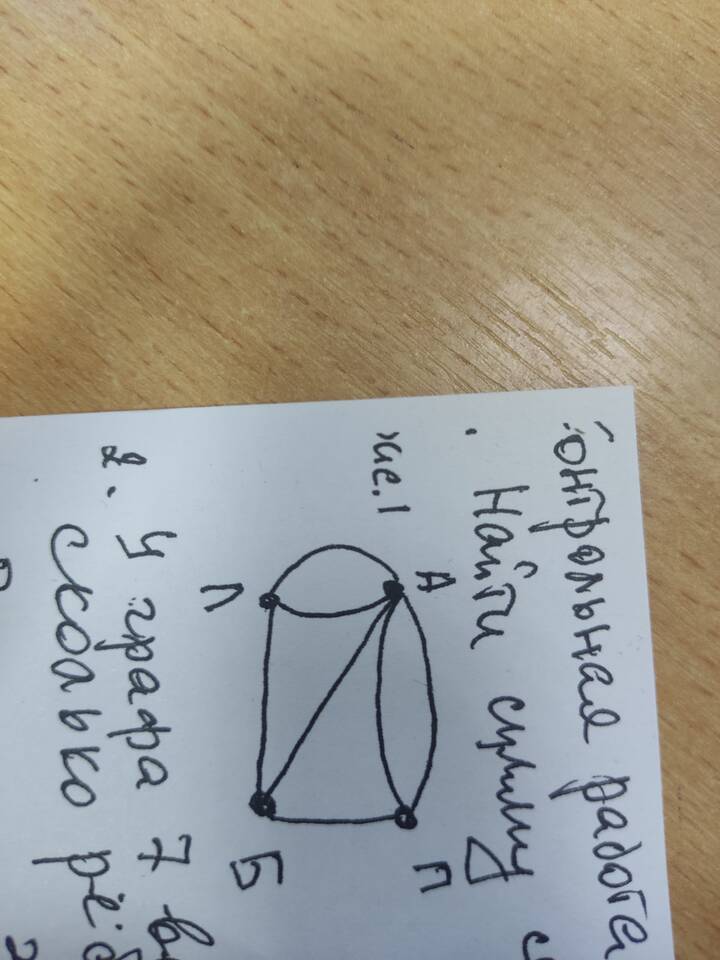 онтрольная работа
. Найти сумму с
рис.1
А
П
Л
Б
2. У графа 7 в
сколько рёб